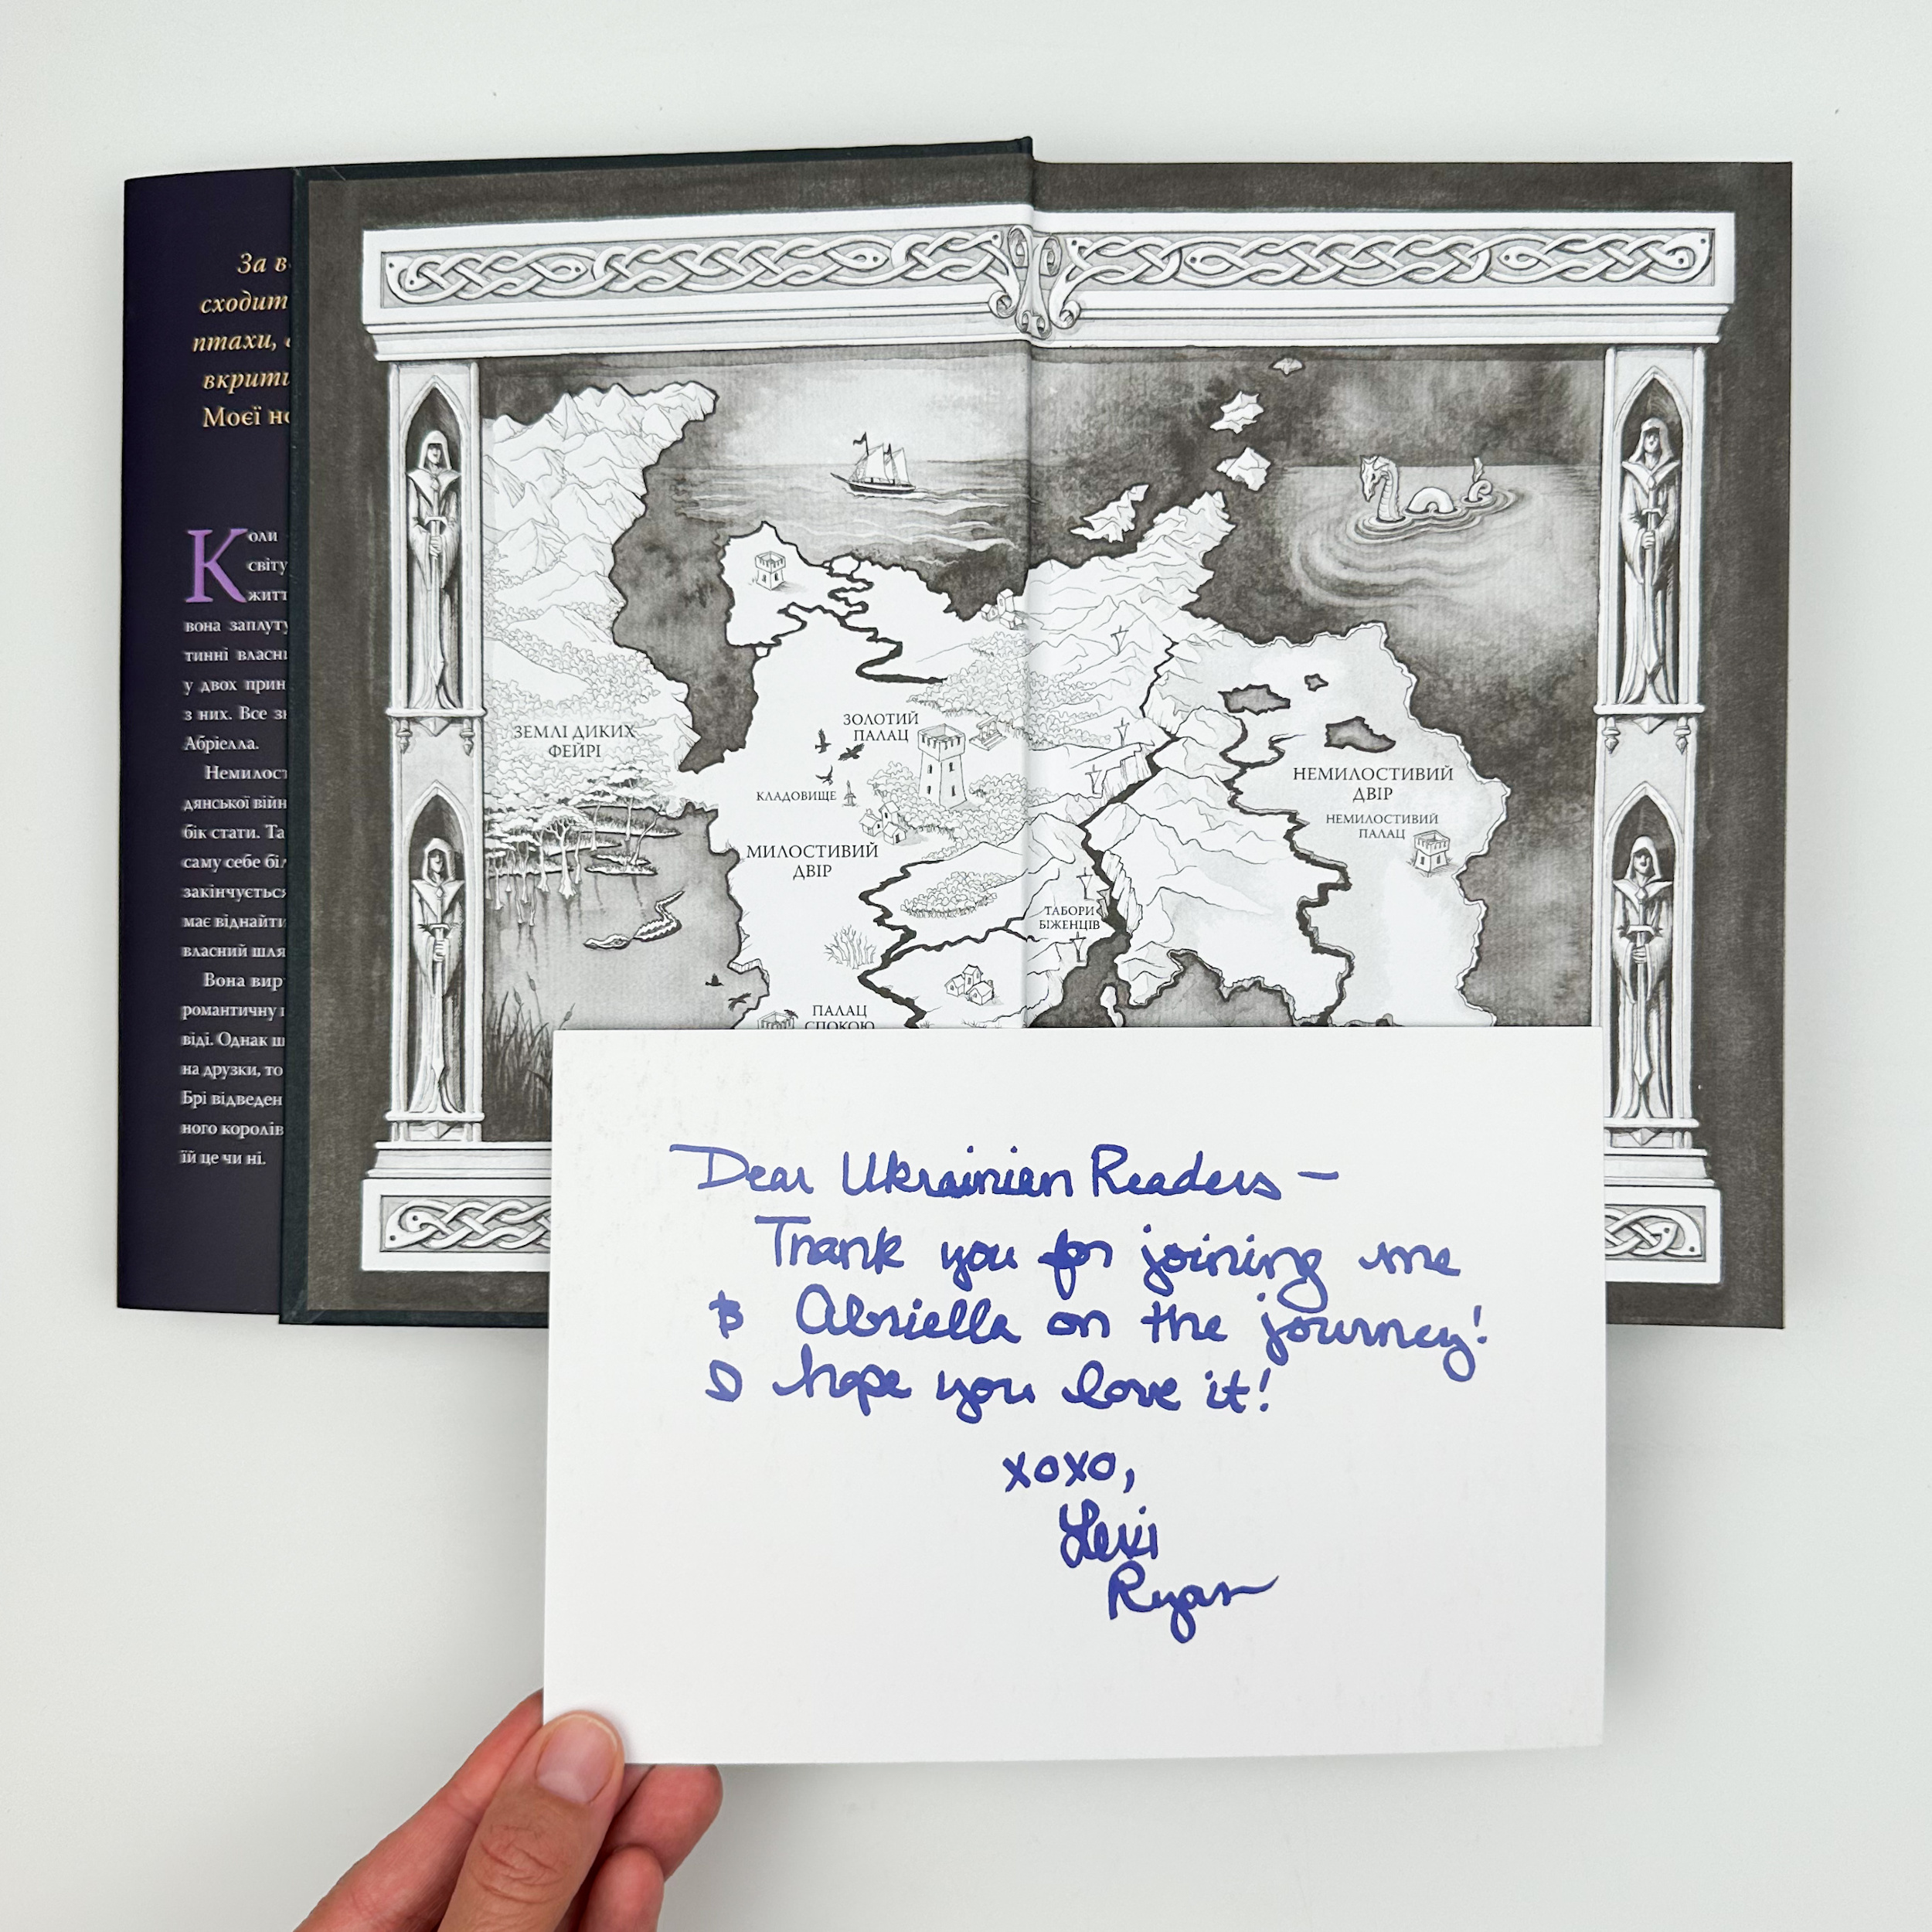 За в
сходит
птахи,
вкрити
Моєї но
Коли
світу
житт
вона заплуту
тинні власн
у двох прин
з них. Все зн
Абріелла.
Немилост
дянської війн
бік стати. Та
саму себе біл
закінчується
має віднайти
власний шля
Вона вир
романтичну
віді. Однак ш
на друзки, то
Брі відведен
ного королів
їй це чи ні.
ЗЕМЛІ ДИКИХ
ФЕЙРІ
ЗОЛОТИЙ
ПАЛАЦ
КЛАДОВИЩЕ
МИЛОСТИВИЙ
ДВІР
ПАЛАЦ
СПОКОЮ
ТАБОРИ
БІЖЕНЦІВ
НЕМИЛОСТИВИЙ
ДВІР
НЕМИЛОСТИВИЙ
ПАЛАЦ
Dear Ukrainian Readers –
Thank you for joining me
& Abriella on the journey!
I hope you love it!
xoxo,
Lexi
Ryan